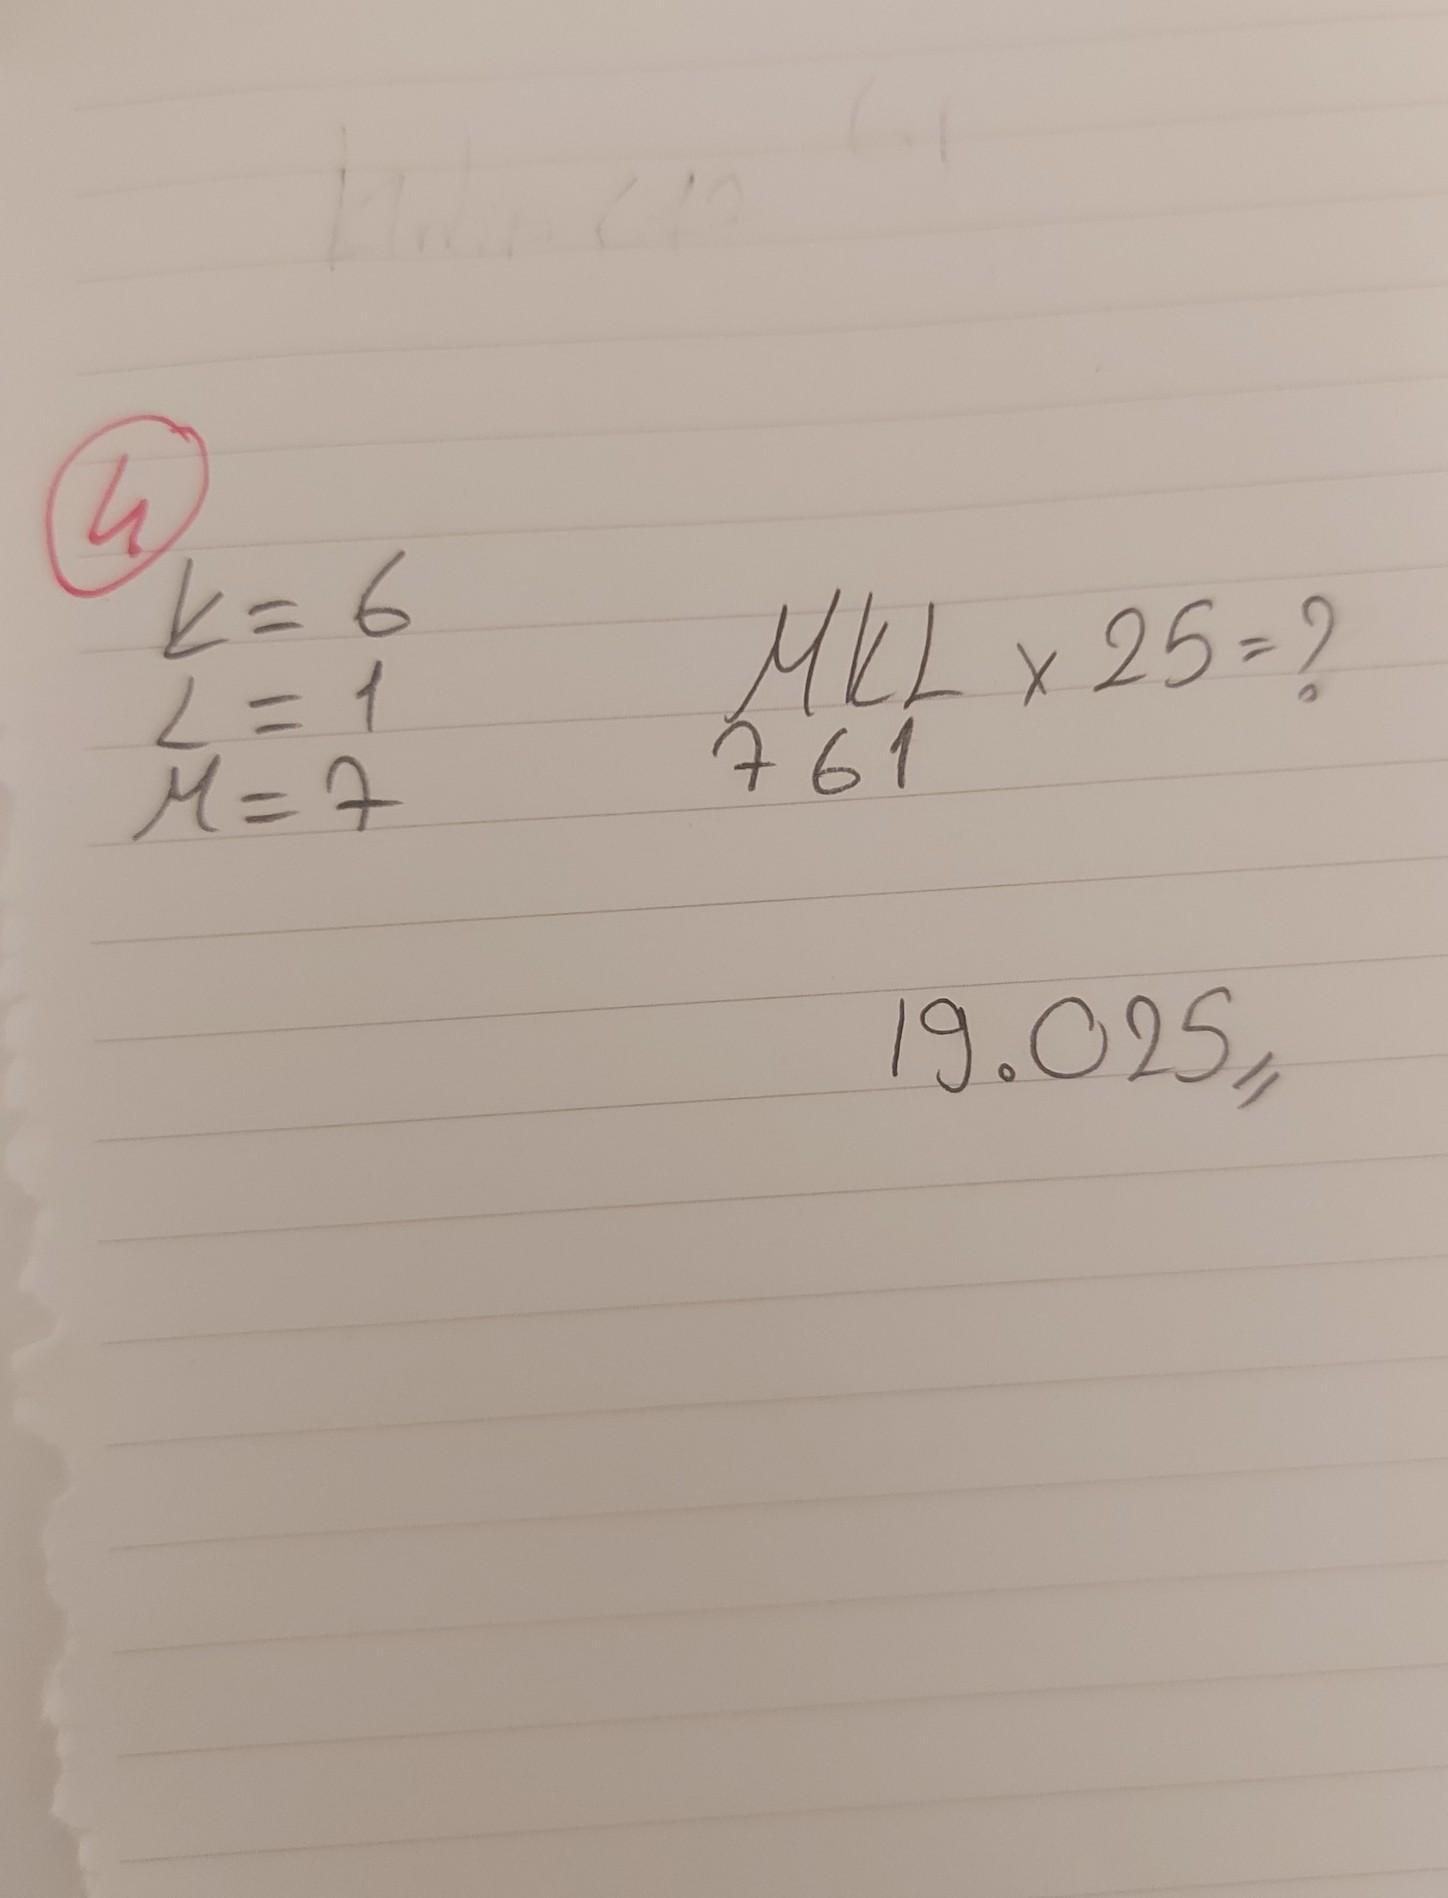 4
K = 6
L = 1
M = 7
MKL x 25 = ?
7 6 1
19.025,,